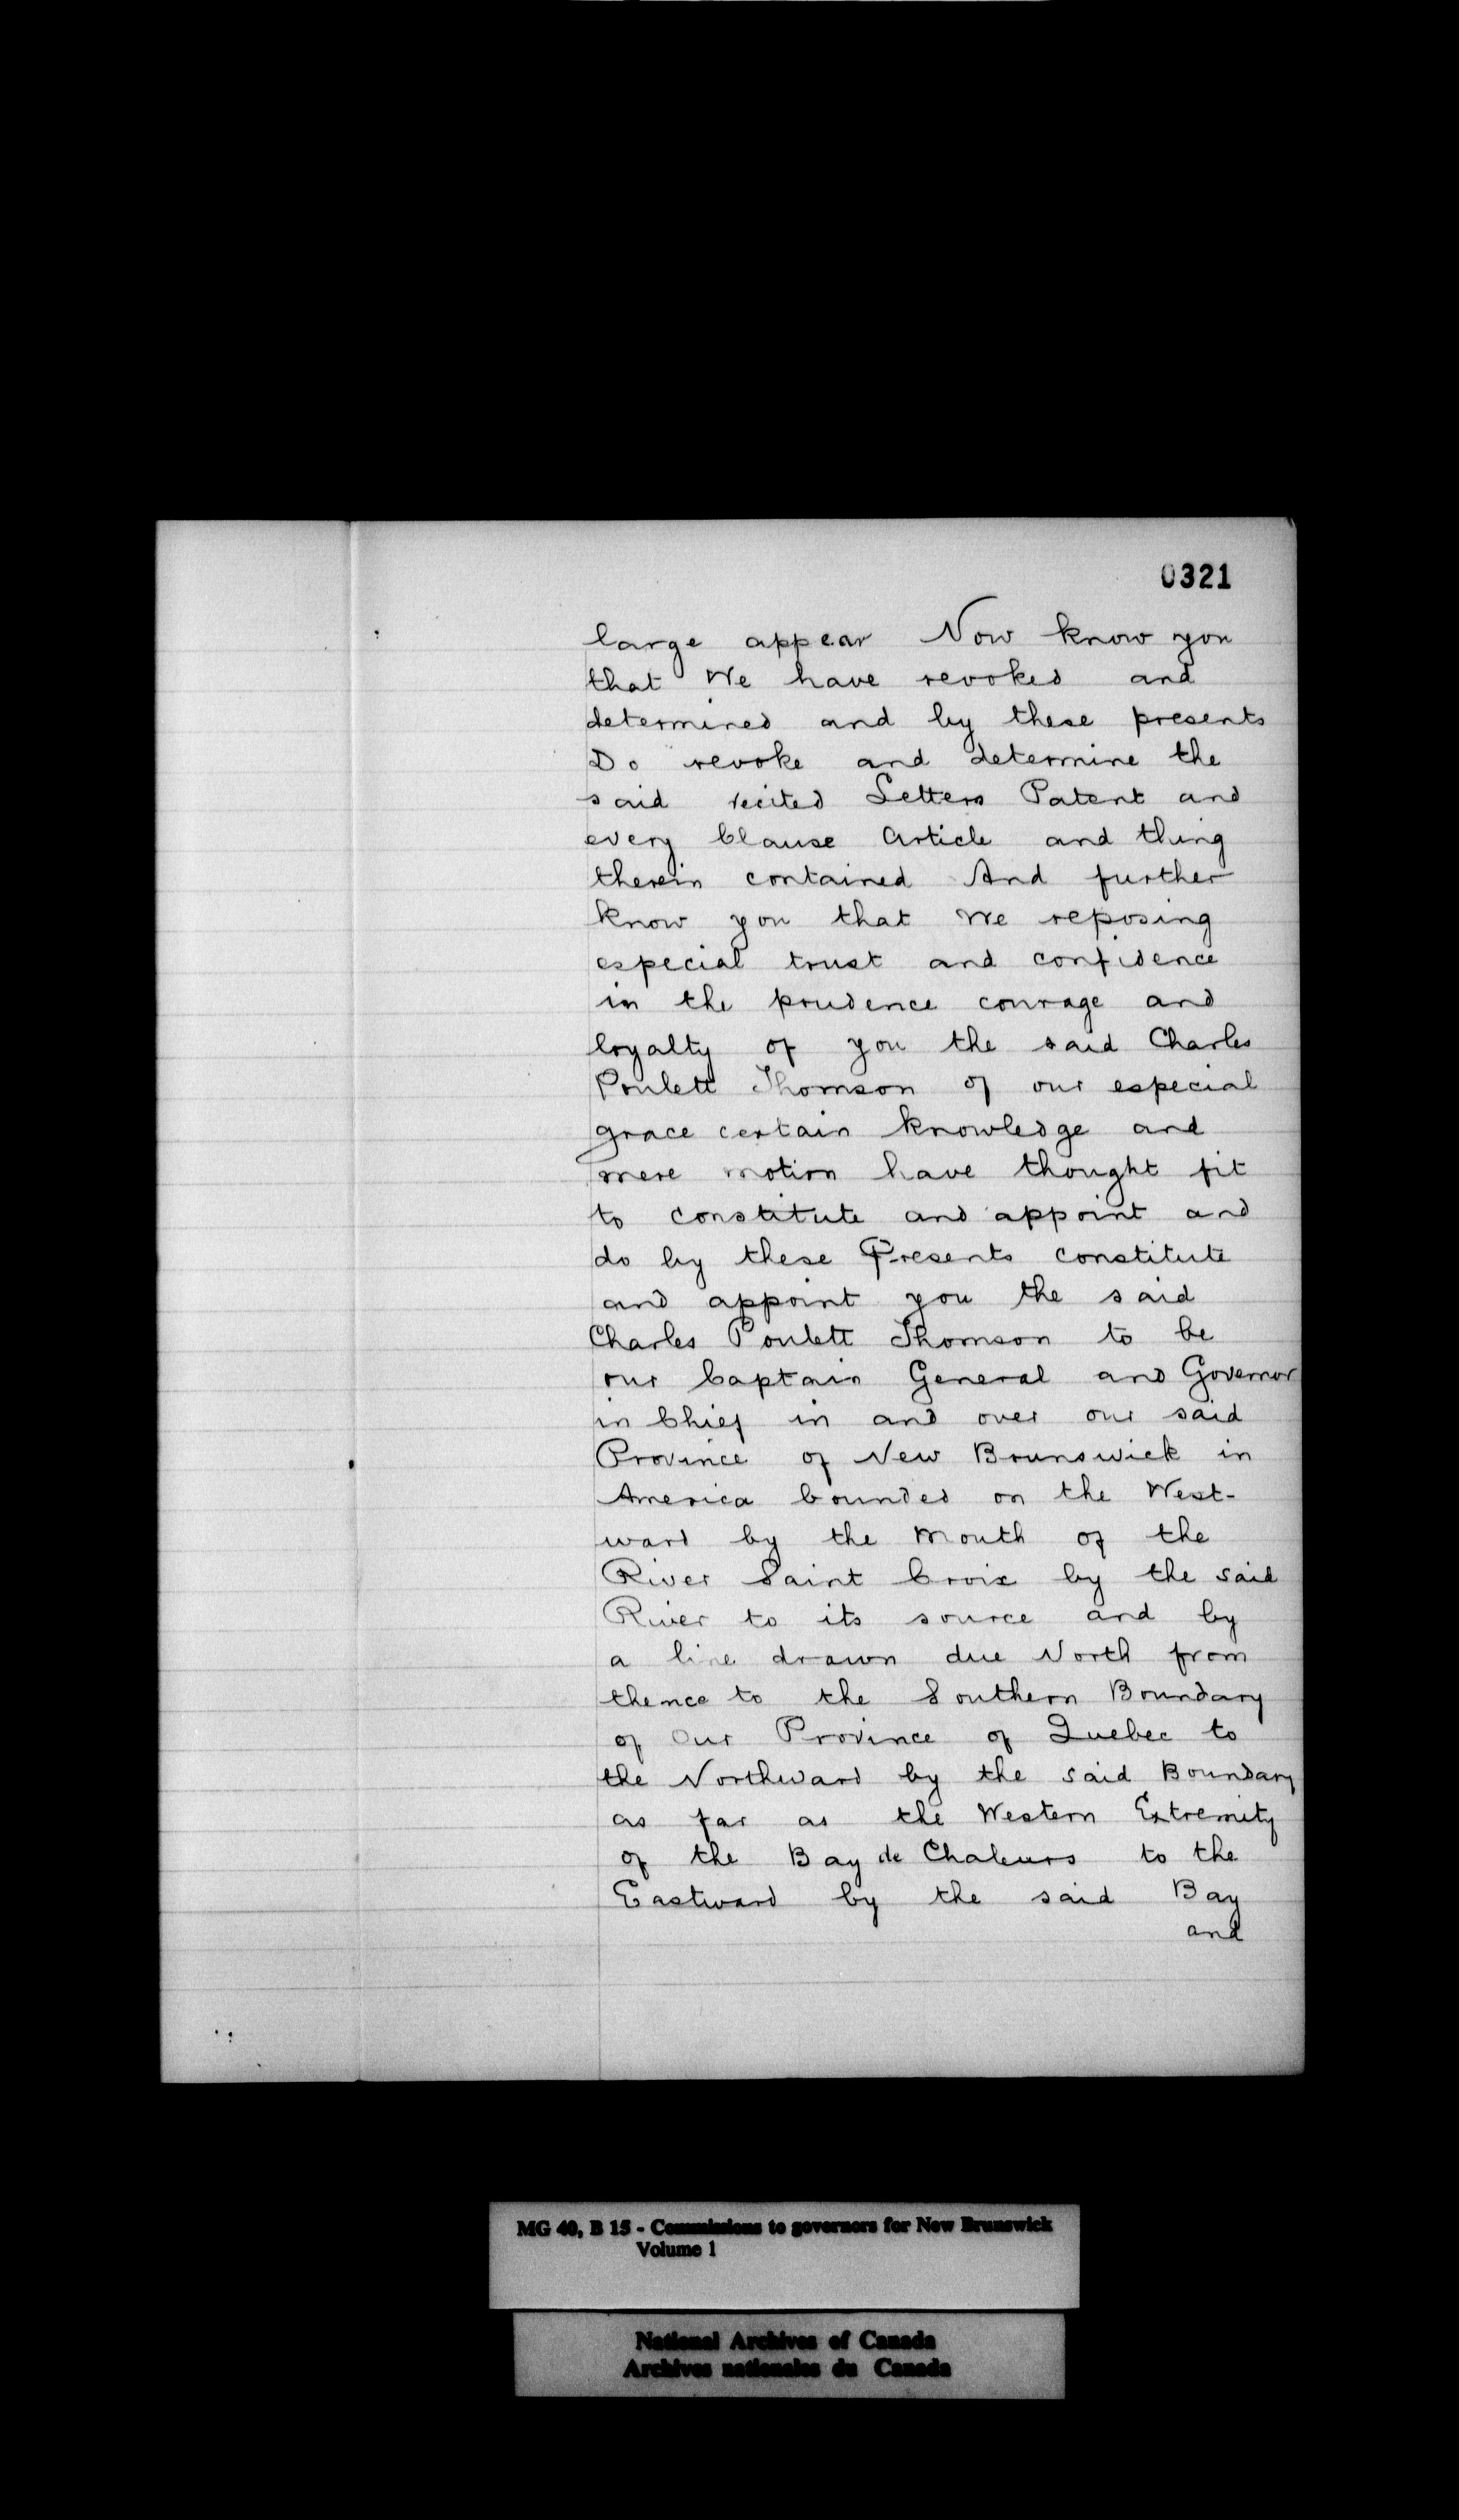 0321
large appear Now know you
that We have revoked and
determined and by these presents
Do revoke and determine the
said recited Letters Patent and
every Clause Article and thing
therein contained And further
know you that We reposing
especial trust and confidence
in the prudence courage and
loyalty of you the said Charles
Poulett Thomson of our especial
grace certain knowledge and
mere motion have thought fit
to constitute and appoint and
do by these Presents constitute
and appoint you the said
Charles Poulett Thomson to be
our Captain General and Governor
in Chief in and over our said
Province of New Brunswick in
America bounded on the West-
ward by the Mouth of the
River Saint Croix by the said
River to its source and by
a line drawn due North from
thence to the Southern Boundary
of Our Province of Quebec to
the Northward by the said Boundary
as far as the Western Extremity
of the Bay de Chaleurs to the
Eastward by the said Bay
and
MG 40, B 15 - Commissions to governors for New Brunswick
Volume 1
National Archives of Canada
Archives nationales du Canada